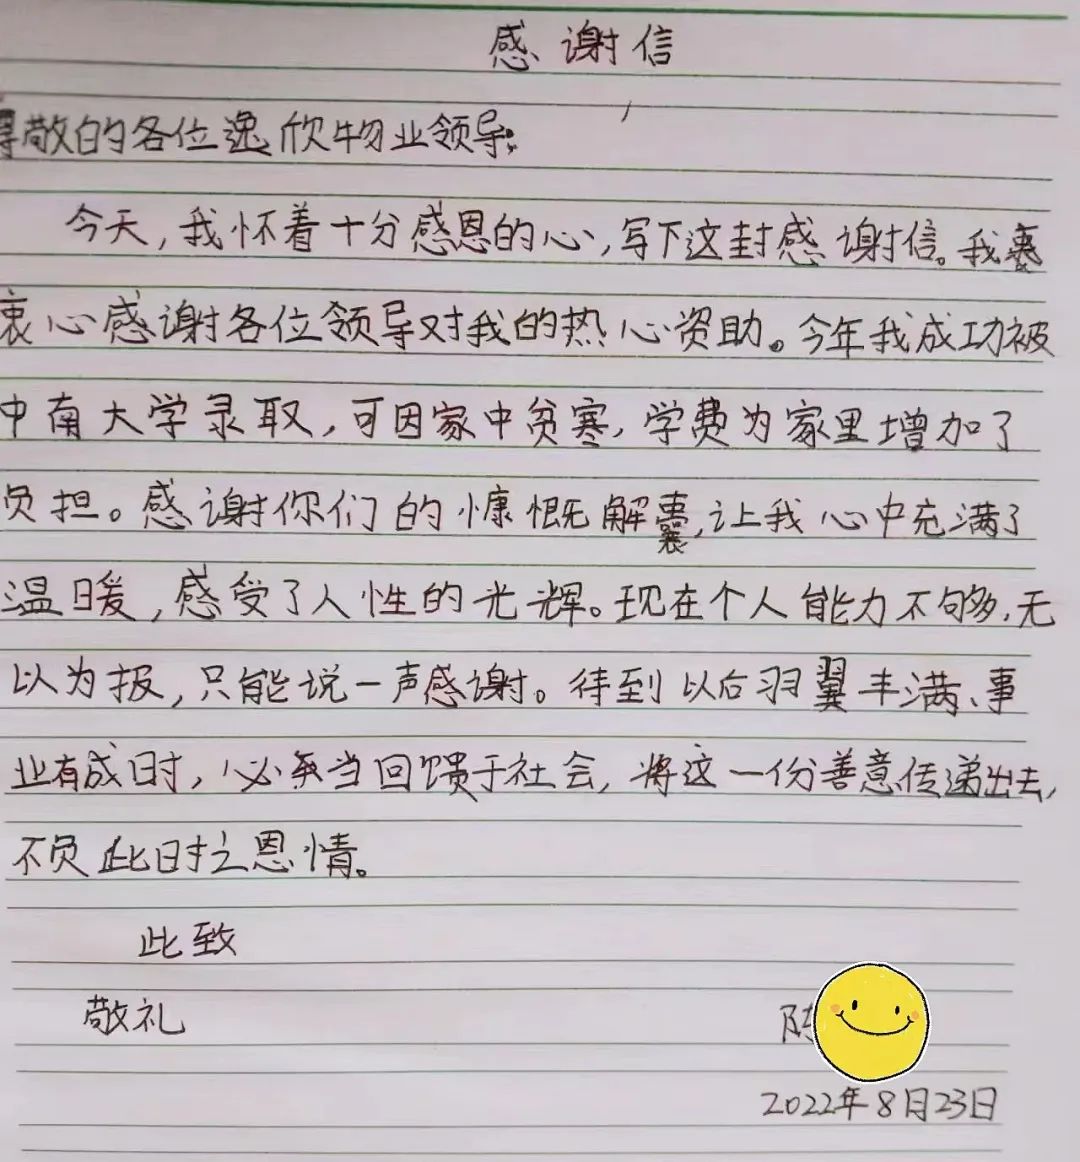 感谢信
尊敬的各位逸欣物业领导:
今天,我怀着十分感恩的心,写下这封感谢信。我
衷心感谢各位领导对我的热心资助。今年我成功被
中南大学录取,可因家中贫寒,学费为家里增加了
负担。感谢你们的慷慨解囊,让我心中充满了
温暖,感受了人性的光辉。现在个人能力不够,无
以为报,只能说一声感谢。待到以后羽翼丰满、事
业有成时,必当回馈于社会,将这一份善意传递出去,
不负此时之恩情。
此致
敬礼
陈
2022年8月23日